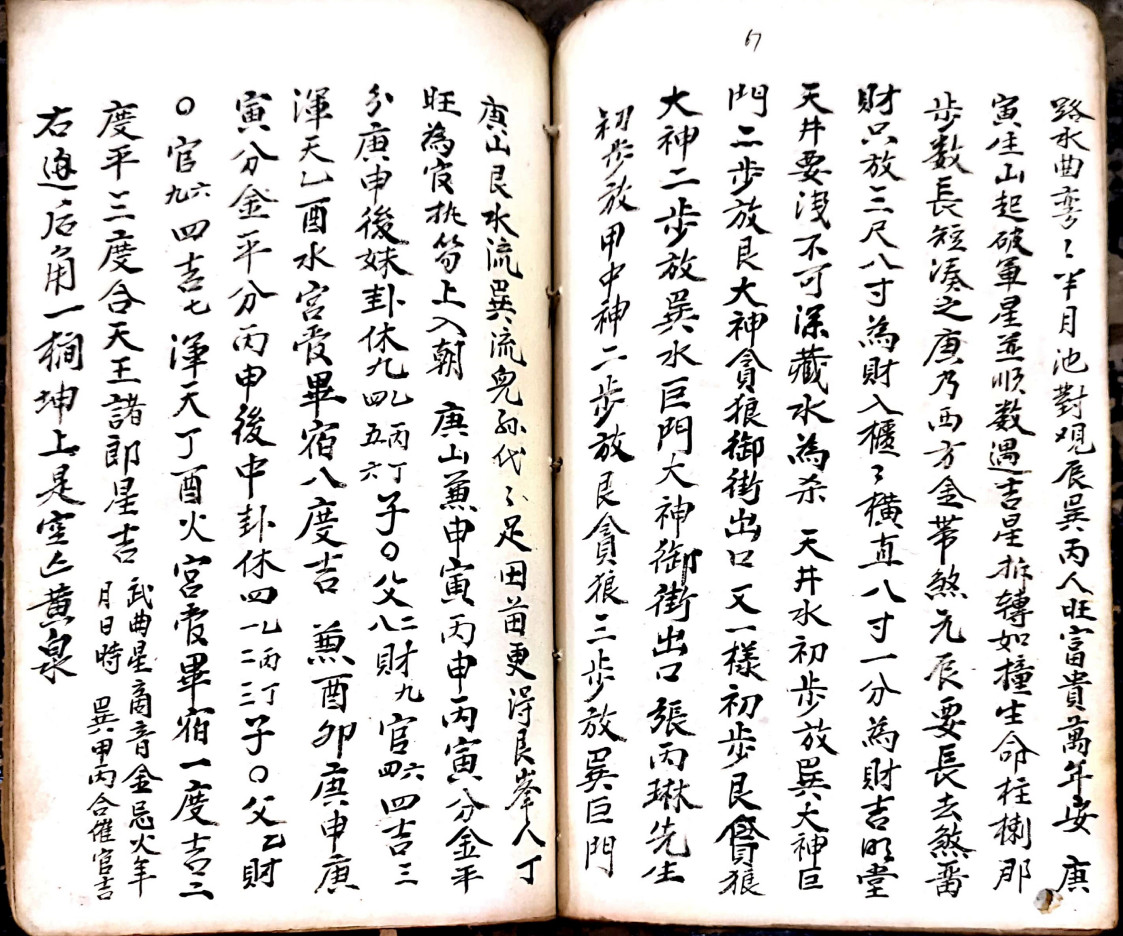 67
路水曲弯〻半月池對观辰巽丙人旺富貴萬年安 庚
寅坐山起破軍星並順数遇吉星拆轉如撞生命柱樹那
步数長短凑之庚乃西方金带煞元辰要長去煞畨
財只放三尺八寸為財入櫃〻橫直八寸一分為財吉明堂
天井要浅不可深藏水為杀 天井水初步放巽大神巨
門二步放艮大神貪狼御街出口又一樣初步艮貪狼
大神二步放巽水巨門大神御街出口 張丙琳先生
初步放甲中神二步放艮貪狼三步放巽巨門
庚山艮水流巽流兒孫代〻足田苗更得艮峯人丁
旺為官执笏上入朝 庚山兼申寅丙申丙寅分金平
分庚申後妹卦休九 乙四 丙五 丁六 子〇父二八財九官六四四吉三
渾天乙酉水宮霞畢宿八度吉 兼酉卯庚申庚
寅分金平分丙申後中卦休四 乙一 丙二 丁三 子〇父乙財
〇官六九四吉七 渾天丁酉火宮霞畢宿一度吉二
度平三度合天王諸郎星吉 武曲星商音金忌火年
月日時 巽甲丙合催官吉
右边后角一橺坤上是空亡黄泉